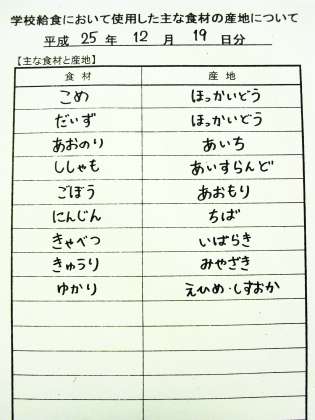 学校給食において使用した主な食材の産地について
平成 25 年 12 月 19 日分
【主な食材と産地】
食材 産地
こめ ほっかいどう
だいず ほっかいどう
あおのり あいち
ししゃも あいすらんど
ごぼう あおもり
にんじん ちば
きゃべつ いばらき
きゅうり みやざき
ゆかり えひめ・しずおか